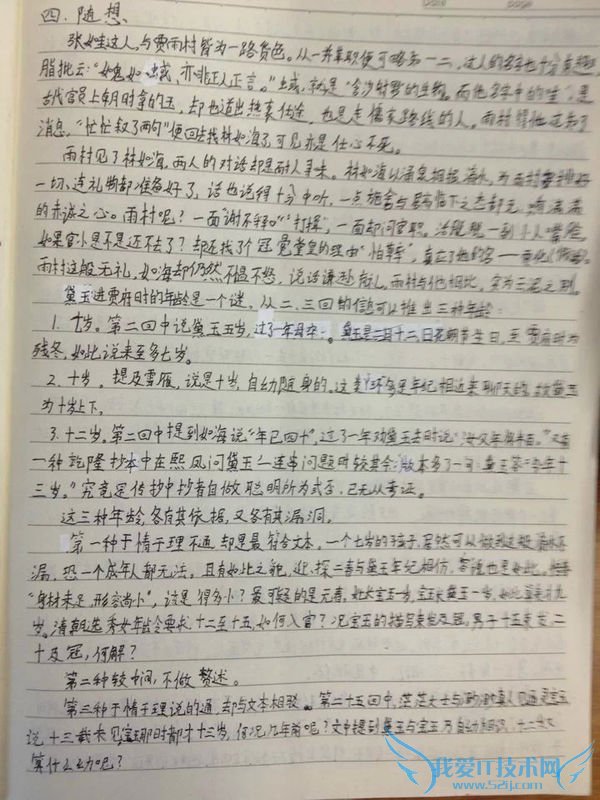 Date page
四、随想
张如圭这人,与贾雨村皆为一路货色。从一并革职便可略知一二,这人的名字也十分有趣,
脂批云:“如鬼如蜮,亦非正人正言。”蜮,就是“含沙射影”的生物。而他名字中的“圭”,是
古代官员上朝时拿的玉,却也道出热衷仕途,也是走儒家路线的人。雨村得他起复
消息,“忙忙叙了两句”便回去找林如海了,可见亦是仕心不死。
雨村见了林如海,两人的对话却是耐人寻味。林如海以涌泉相报滴水,为雨村安排好
一切,连礼物都准备好了,话也说得十分中听,一点施舍与居高临下之态都无,
的赤诚之心。雨村呢?一面“谢不释口”“打拱”,一面却问官职。活脱脱一副小人嘴脸,
如果官小是不是还不去了?却还找了个冠冕堂皇的理由“怕草率”,真应了他的名
雨村这般无礼,如海却仍然不愠不怒,说话谦逊有礼。雨村与他相比,实为云泥之别。
黛玉进贾府时的年龄是一个谜,从二、三回的信息可以推出三种年龄:
1. 七岁。第二回中说黛玉五岁,过了一年母卒。黛玉是二月十二日花朝节生日,至贾府时为
残冬,如此说来至多七岁。
2. 十岁。提及雪雁,说是十岁,自幼随身的。这类丫环多是年纪相近来聊天的,故黛玉
为十岁上下。
3. 十二岁。第二回中提到如海说“年已四十”,过了一年对黛玉去时说:“汝父年将半百。”又有
一种乾隆抄本中在熙凤问黛玉一连串问题时较其余版本多了一句:黛玉答“今年十
三岁。”究竟是传抄中抄者自做聪明所为或否,已无从考证。
这三种年龄,各有其依据,又各有其漏洞。
第一种于情于理不通,却是最符合文本。一个七岁的孩子,居然可以做到这般滴水不
漏,恐一个成年人都无法。且有如此之貌,迎、探二春与黛玉年纪相仿,
“身材未足,形容尚小”,这是得多小?最可疑的是元春,
岁。清朝选秀女年龄要求十二至十五,如何入宫?况宝玉的描写束发及冠,男子十五束发,二
十及冠,何解?
第二种较中间,不做赘述。
第三种于情于理说的通,却与文本相驳。第二十五回中,茫茫大士与渺渺真人见通灵宝玉
说,十三载未见,宝玉那时都才十三岁,何况几年前呢?文中提到黛玉与宝玉乃自幼相识,十二岁又
算什么幼呢?
我爱IT技术网
www.52ij.com